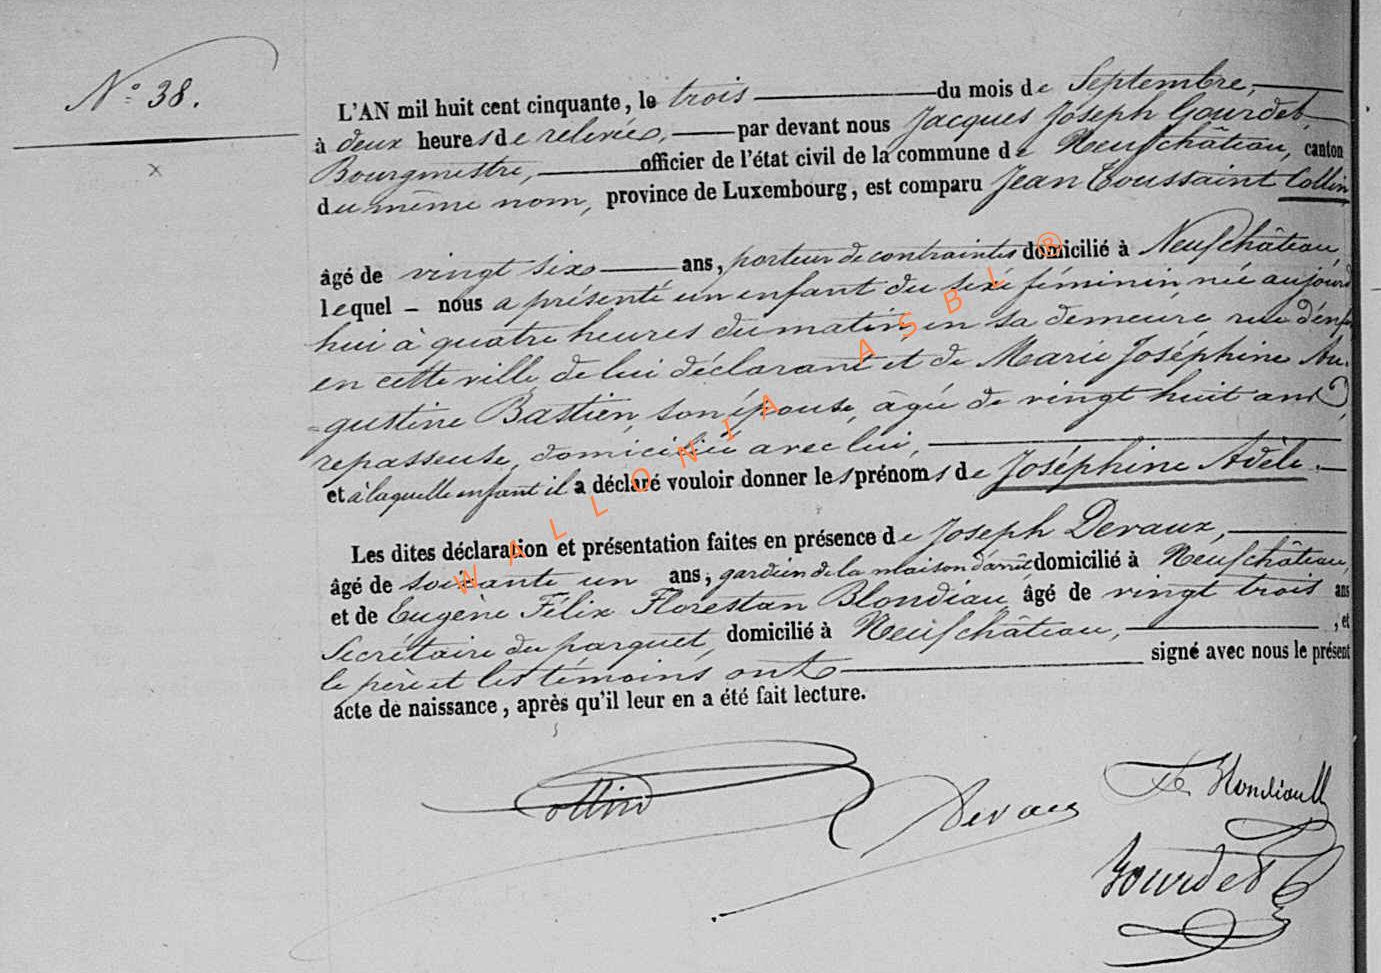 N° 38.
L'AN mil huit cent cinquante, le trois du mois de Septembre,
à deux heures de relevée, par devant nous Jacques Joseph Gourdet,
Bourgmestre, officier de l'état civil de la commune de Neufchâteau, canton
du même nom, province de Luxembourg, est comparu Jean Toussaint Collin
âgé de vingt six ans, porteur de contraintes domicilié à Neufchâteau,
lequel – nous a présenté un enfant du sexe féminin, née aujourd
hui à quatre heures du matin, en sa demeure, rue
en cette ville, de lui déclarant et de Marie Joséphine Au-
=gustine Bastien, son épouse, âgée de vingt huit ans,
repasseuse, domiciliée avec lui,
et à laquelle enfant il a déclaré vouloir donner les prénoms de Joséphine Adèle.
Les dites déclaration et présentation faites en présence de Joseph Devaux,
âgé de soixante un ans, gardien de la maison d'arrêt domicilié à Neufchâteau,
et de Eugène Félix Florestan Blondiau, âgé de vingt trois ans
Secrétaire du parquet, domicilié à Neufchâteau, , et
le père et les témoins ont signé avec nous le présent
acte de naissance, après qu'il leur en a été fait lecture.
Collin Devaux Blondiau
Gourdet
WALLONIA ASBL ®